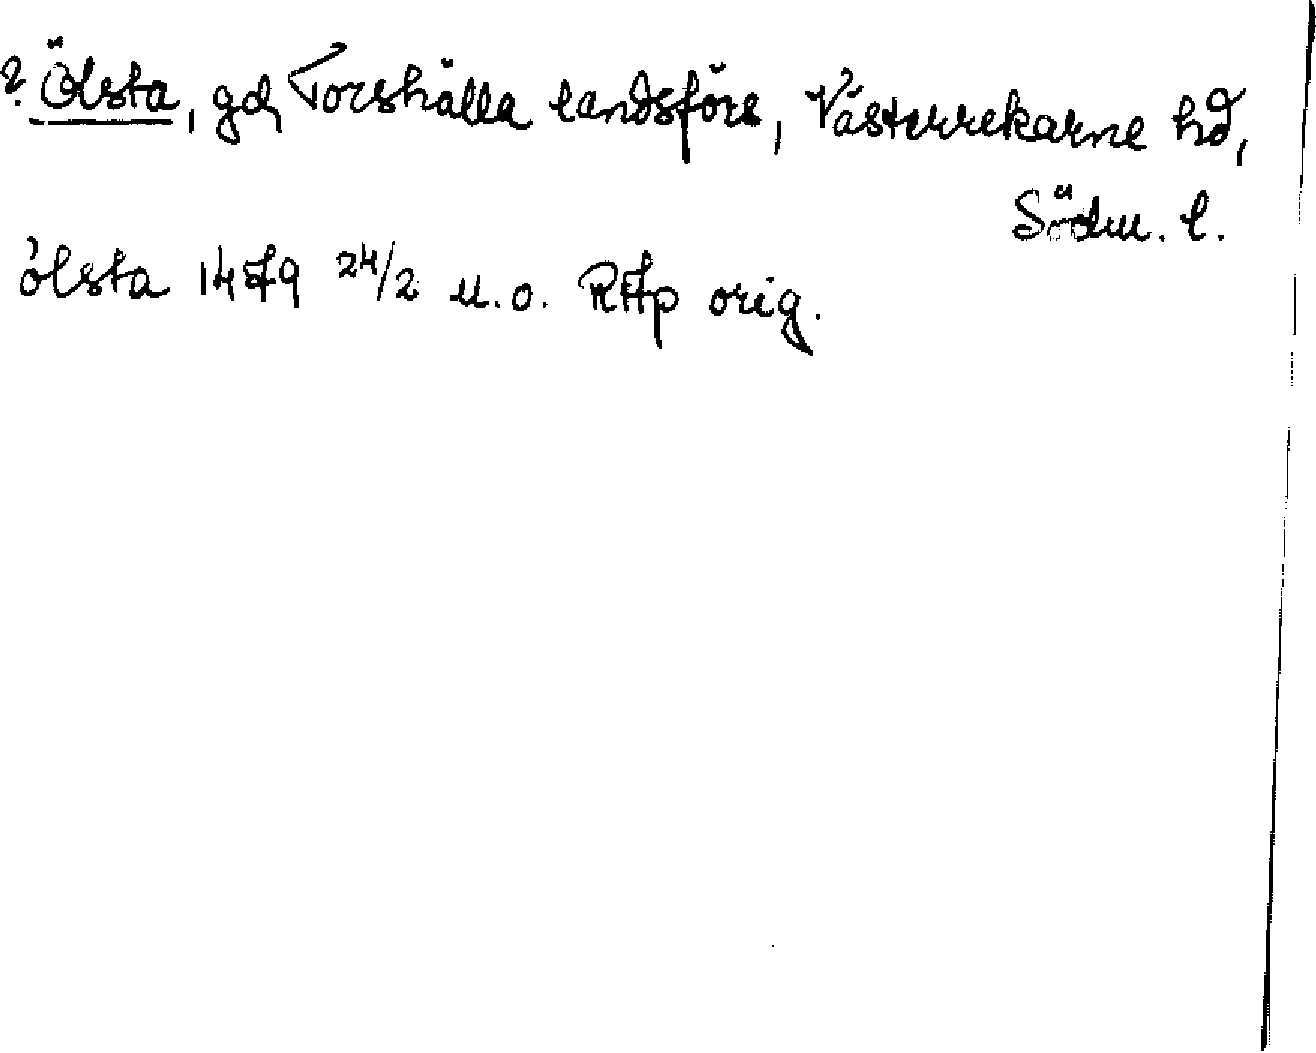 ? Ölsta, gd, Torshälla landsförs, Västerrekarne hd,
Södm. l.
ólsta 1479 24/2 u.o. RAp orig.